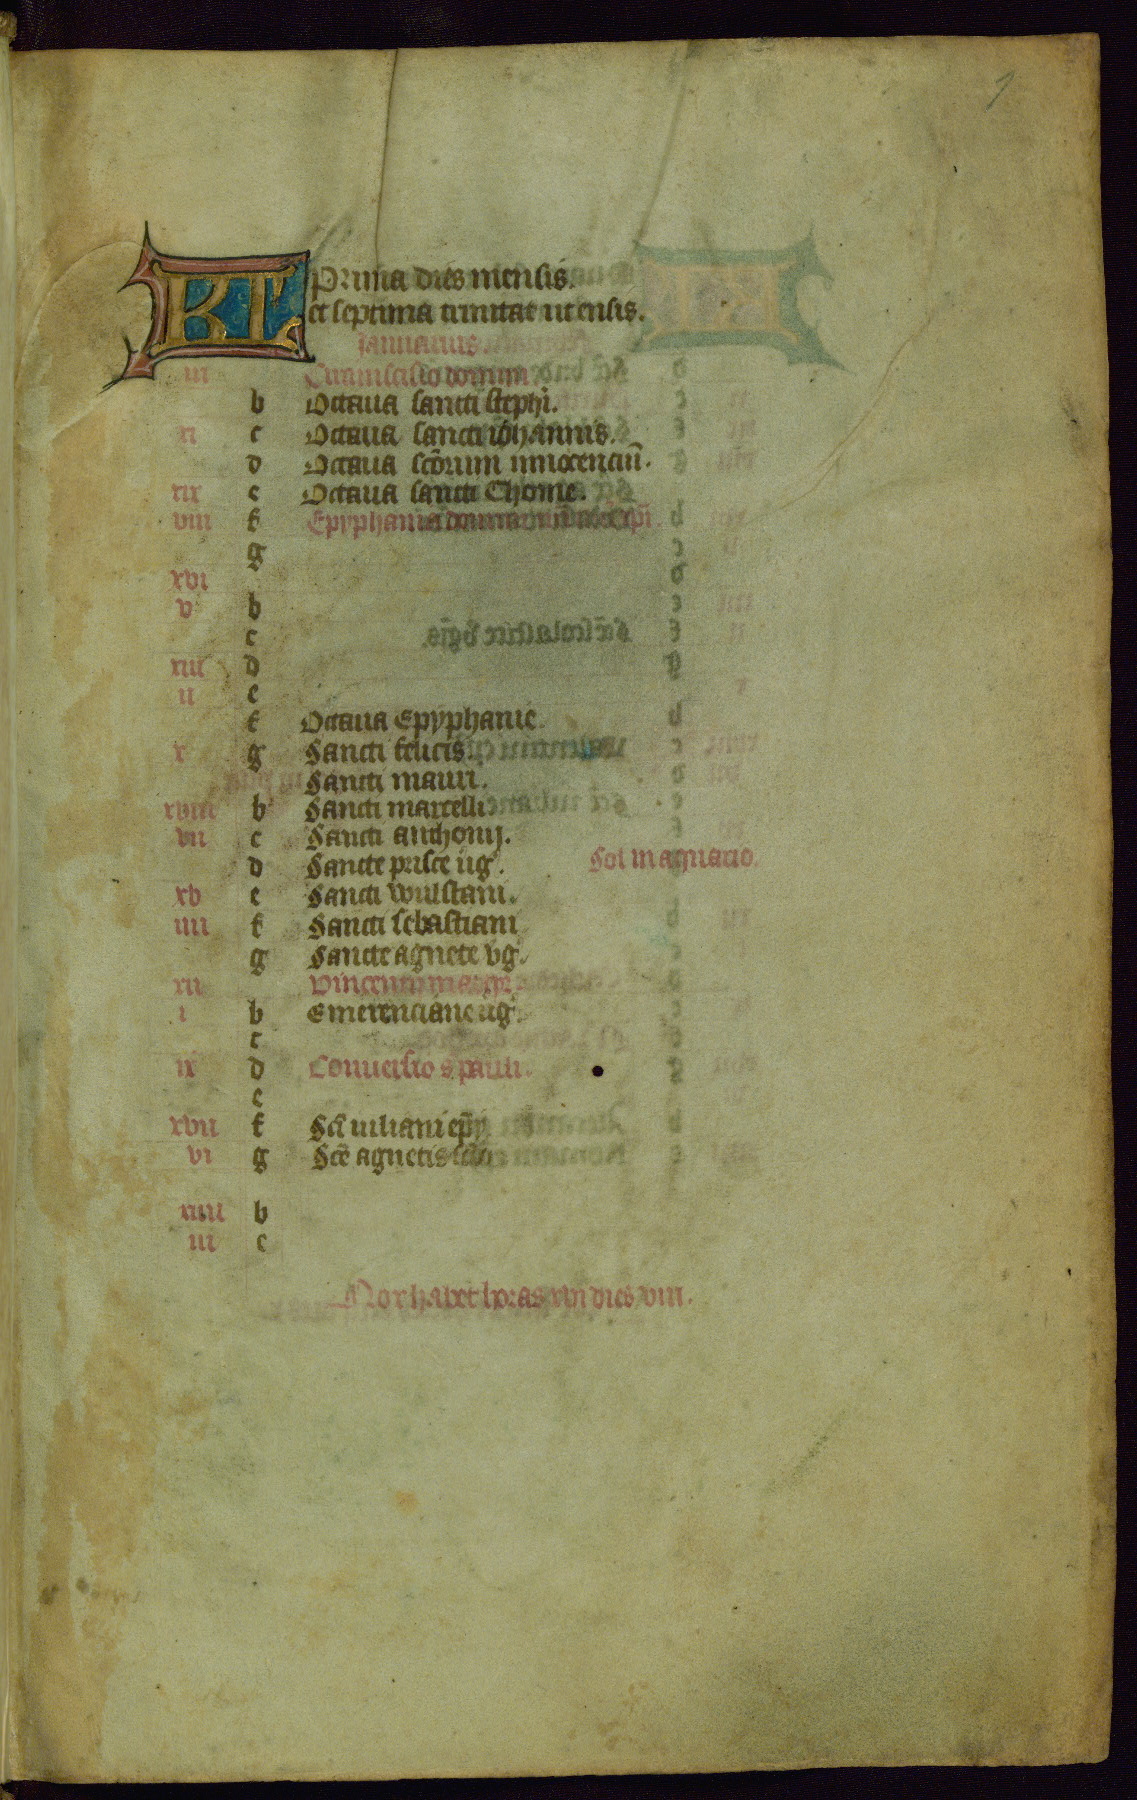 1
KL Prima dies mensis.
et septima truncat ut ensis.
Januarius.
iii Circumcisio domini
b Octaua sancti steph̄i.
xi c Octaua sancti ioh̄annis.
d Octaua sc̄orum innocenciū.
xix e Octaua sancti Thome.
viii f Epyphania domini
g
xvi
v b
c
xiii d
ii e
f Octaua Epyphanie.
x g Sancti felicis.
Sancti mauri.
xviii b Sancti marcelli.
vii c Sancti anthonij.
d Sancte prisce ug̾. Sol in aquario.
xv e Sancti wulstani.
iiii f Sancti sebastiani
g Sancte agnete vg̾.
xii Vincentii martyr̾.
i b Emerenciane ug̾.
c
ix d Conuersio s pauli.
e
xvii f Sc̄i iuliani ep̄i
vi g Sc̄e agnetis
xiiii b
iii c
Nox habet horas xvi dies viii.